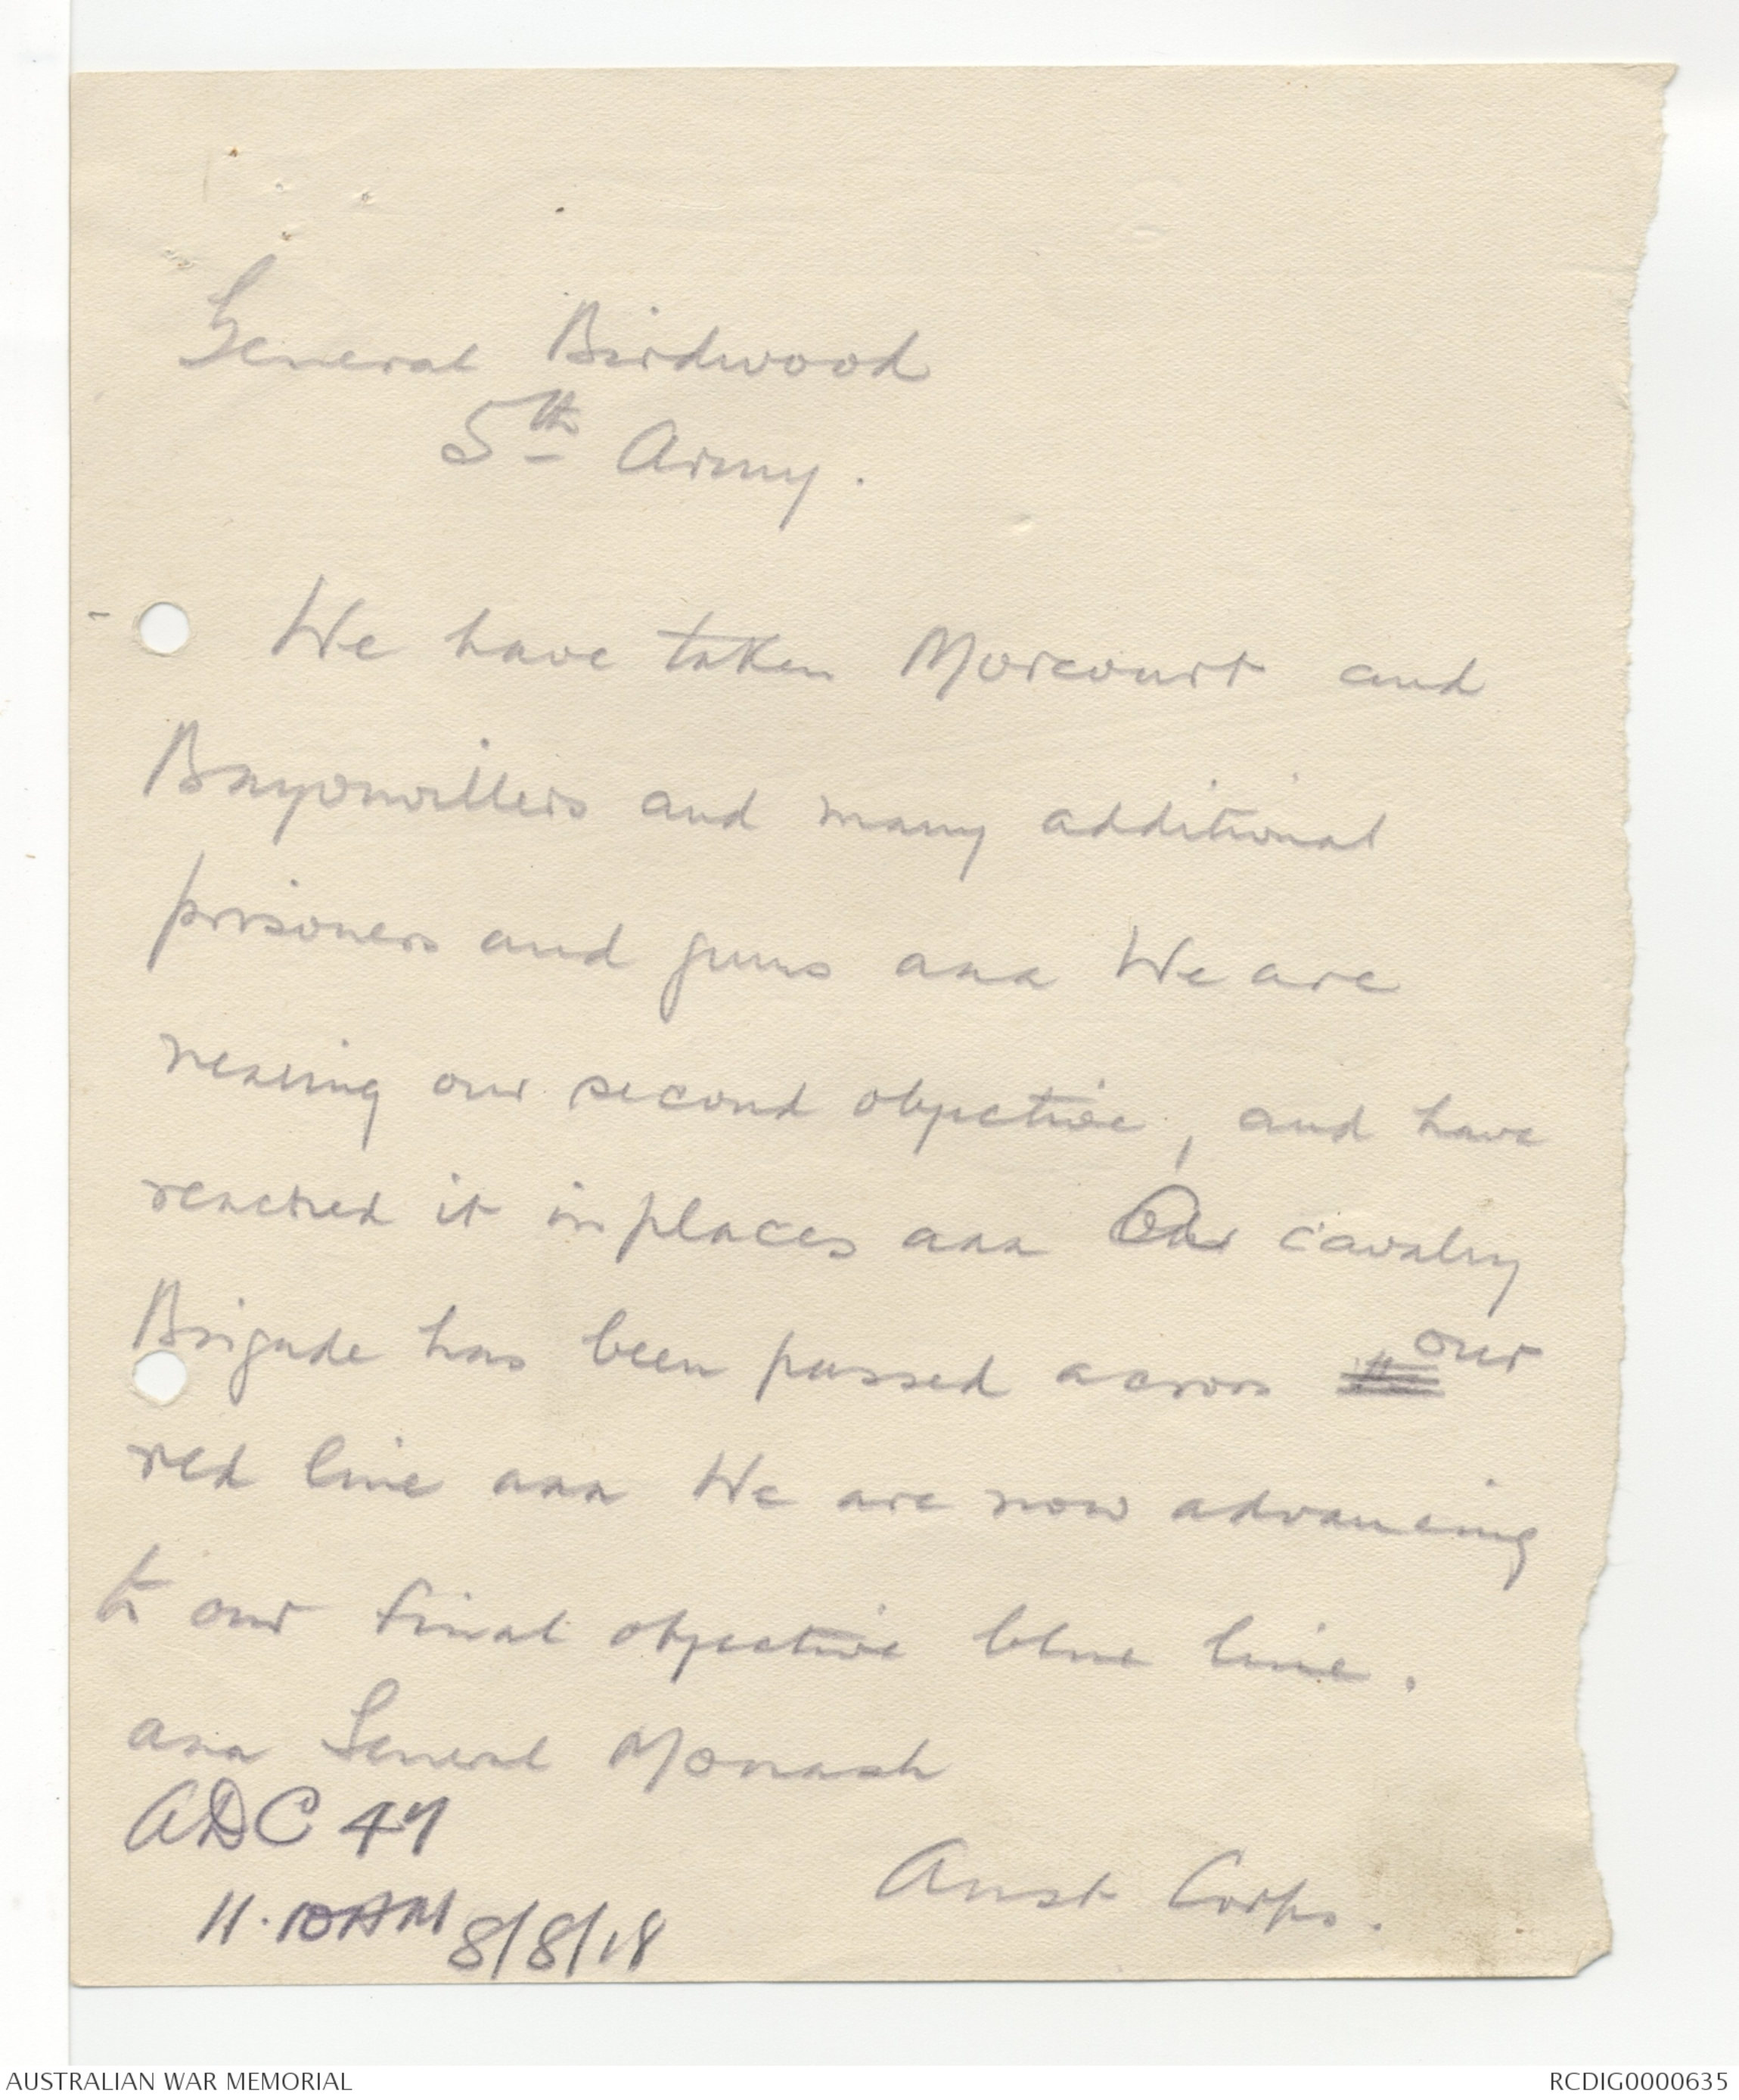 General Birdwood
5th Army.
We have taken Morcourt and
Bayonvillers and many additional
prisoners and guns aaa We are
nearing our second objective, and have
reached it in places aaa Our cavalry
Brigade has been passed across our
red line aaa We are now advancing
to our final objective blue line.
aaa General Monash
ADC 47
Aust Corps.
11.10AM 8/8/18
AUSTRALIAN WAR MEMORIAL
RCDIG0000635